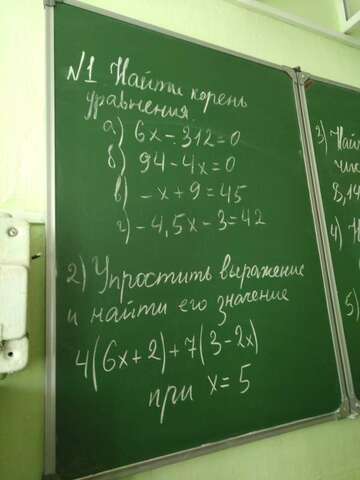 №1 Найти корень
уравнения.
а) 6x - 312 = 0
б) 94 - 4x = 0
в) -x + 9 = 45
г) -4,5x - 3 = 42
2) Упростить выражение
и найти его значение
4(6x + 2) + 7(3 - 2x)
при x = 5
3) Най
чис
8,14
4)
5)